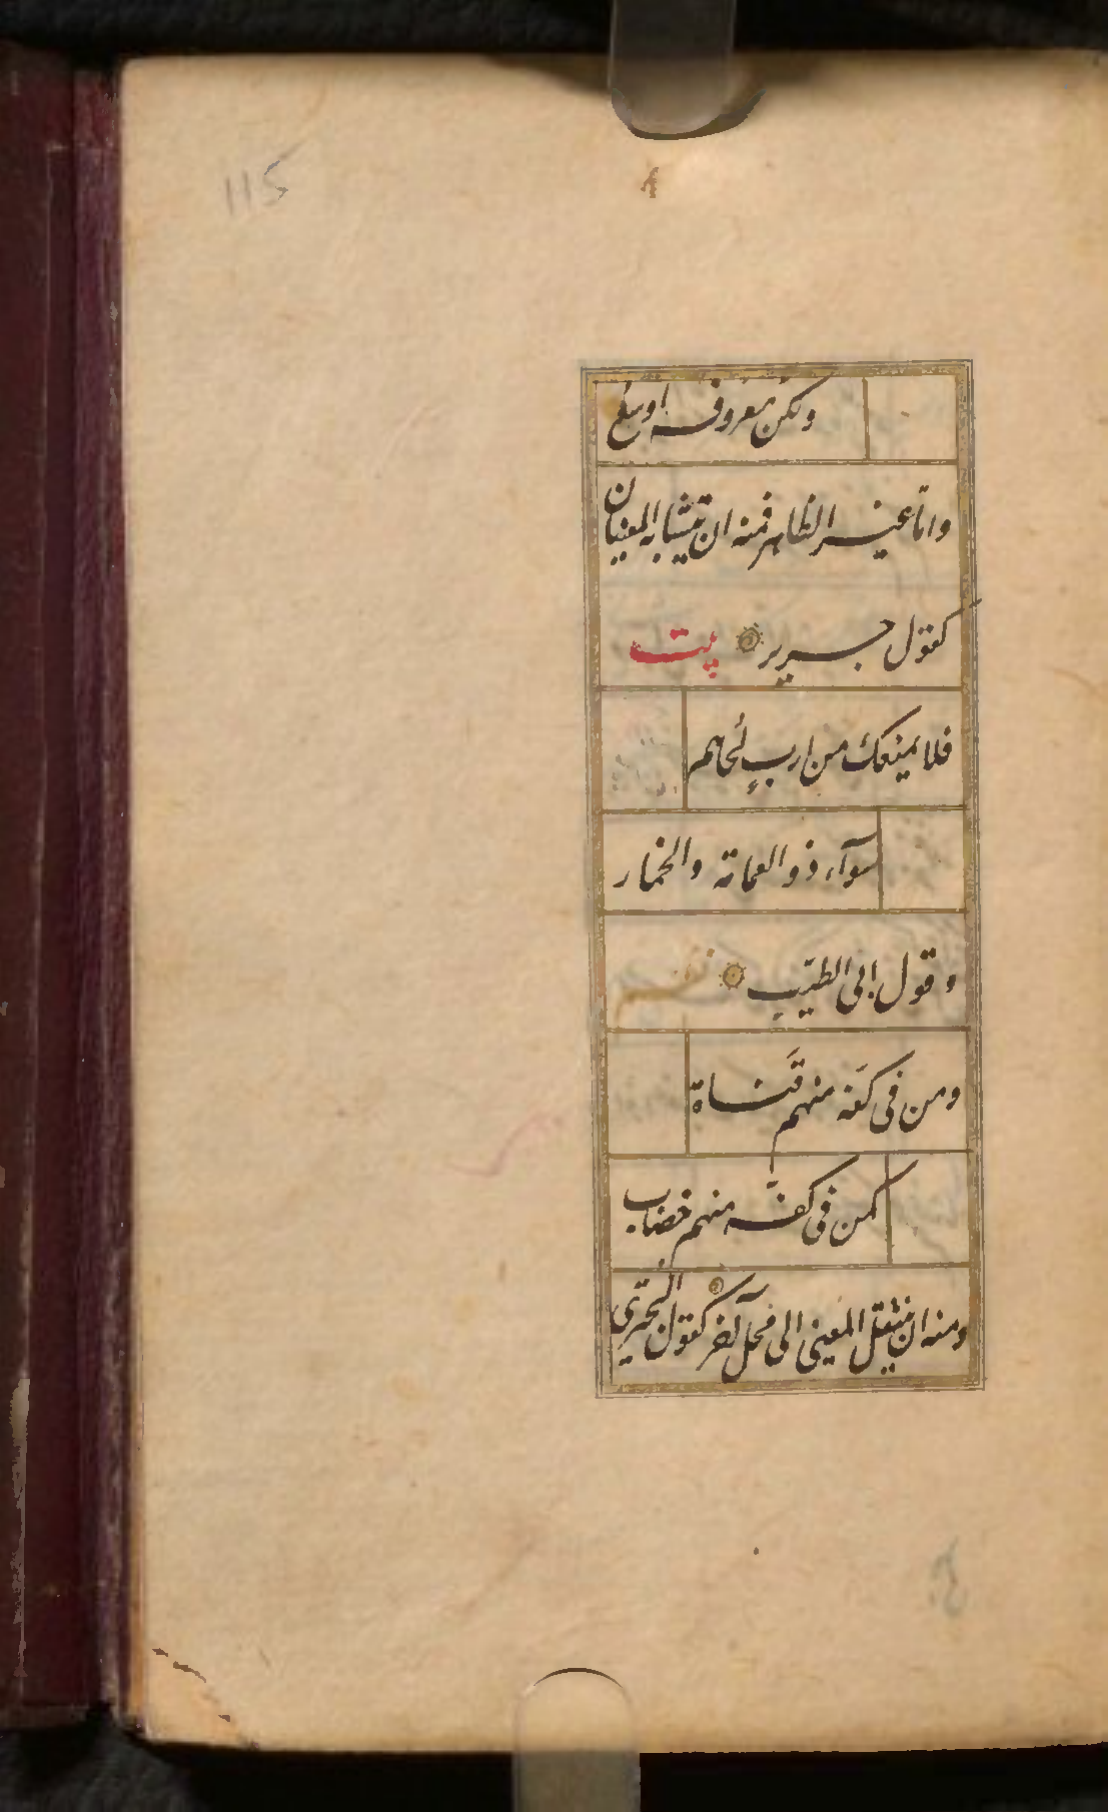 115
ولكن معروفه اوسع
واما غير الظاهر فمنه ان يتشابه المعنيان
كقول جرير بيت
فلا يمنعك من ارب لحاهم
سوآء ذو العمامة والخمار
وقول ابى الطيّب
ومن فى كفه منهم قناة
كمن فى كفه منهم خضاب
ومنه ان ينتقل المعنى الى محل آخر كقول البحترى